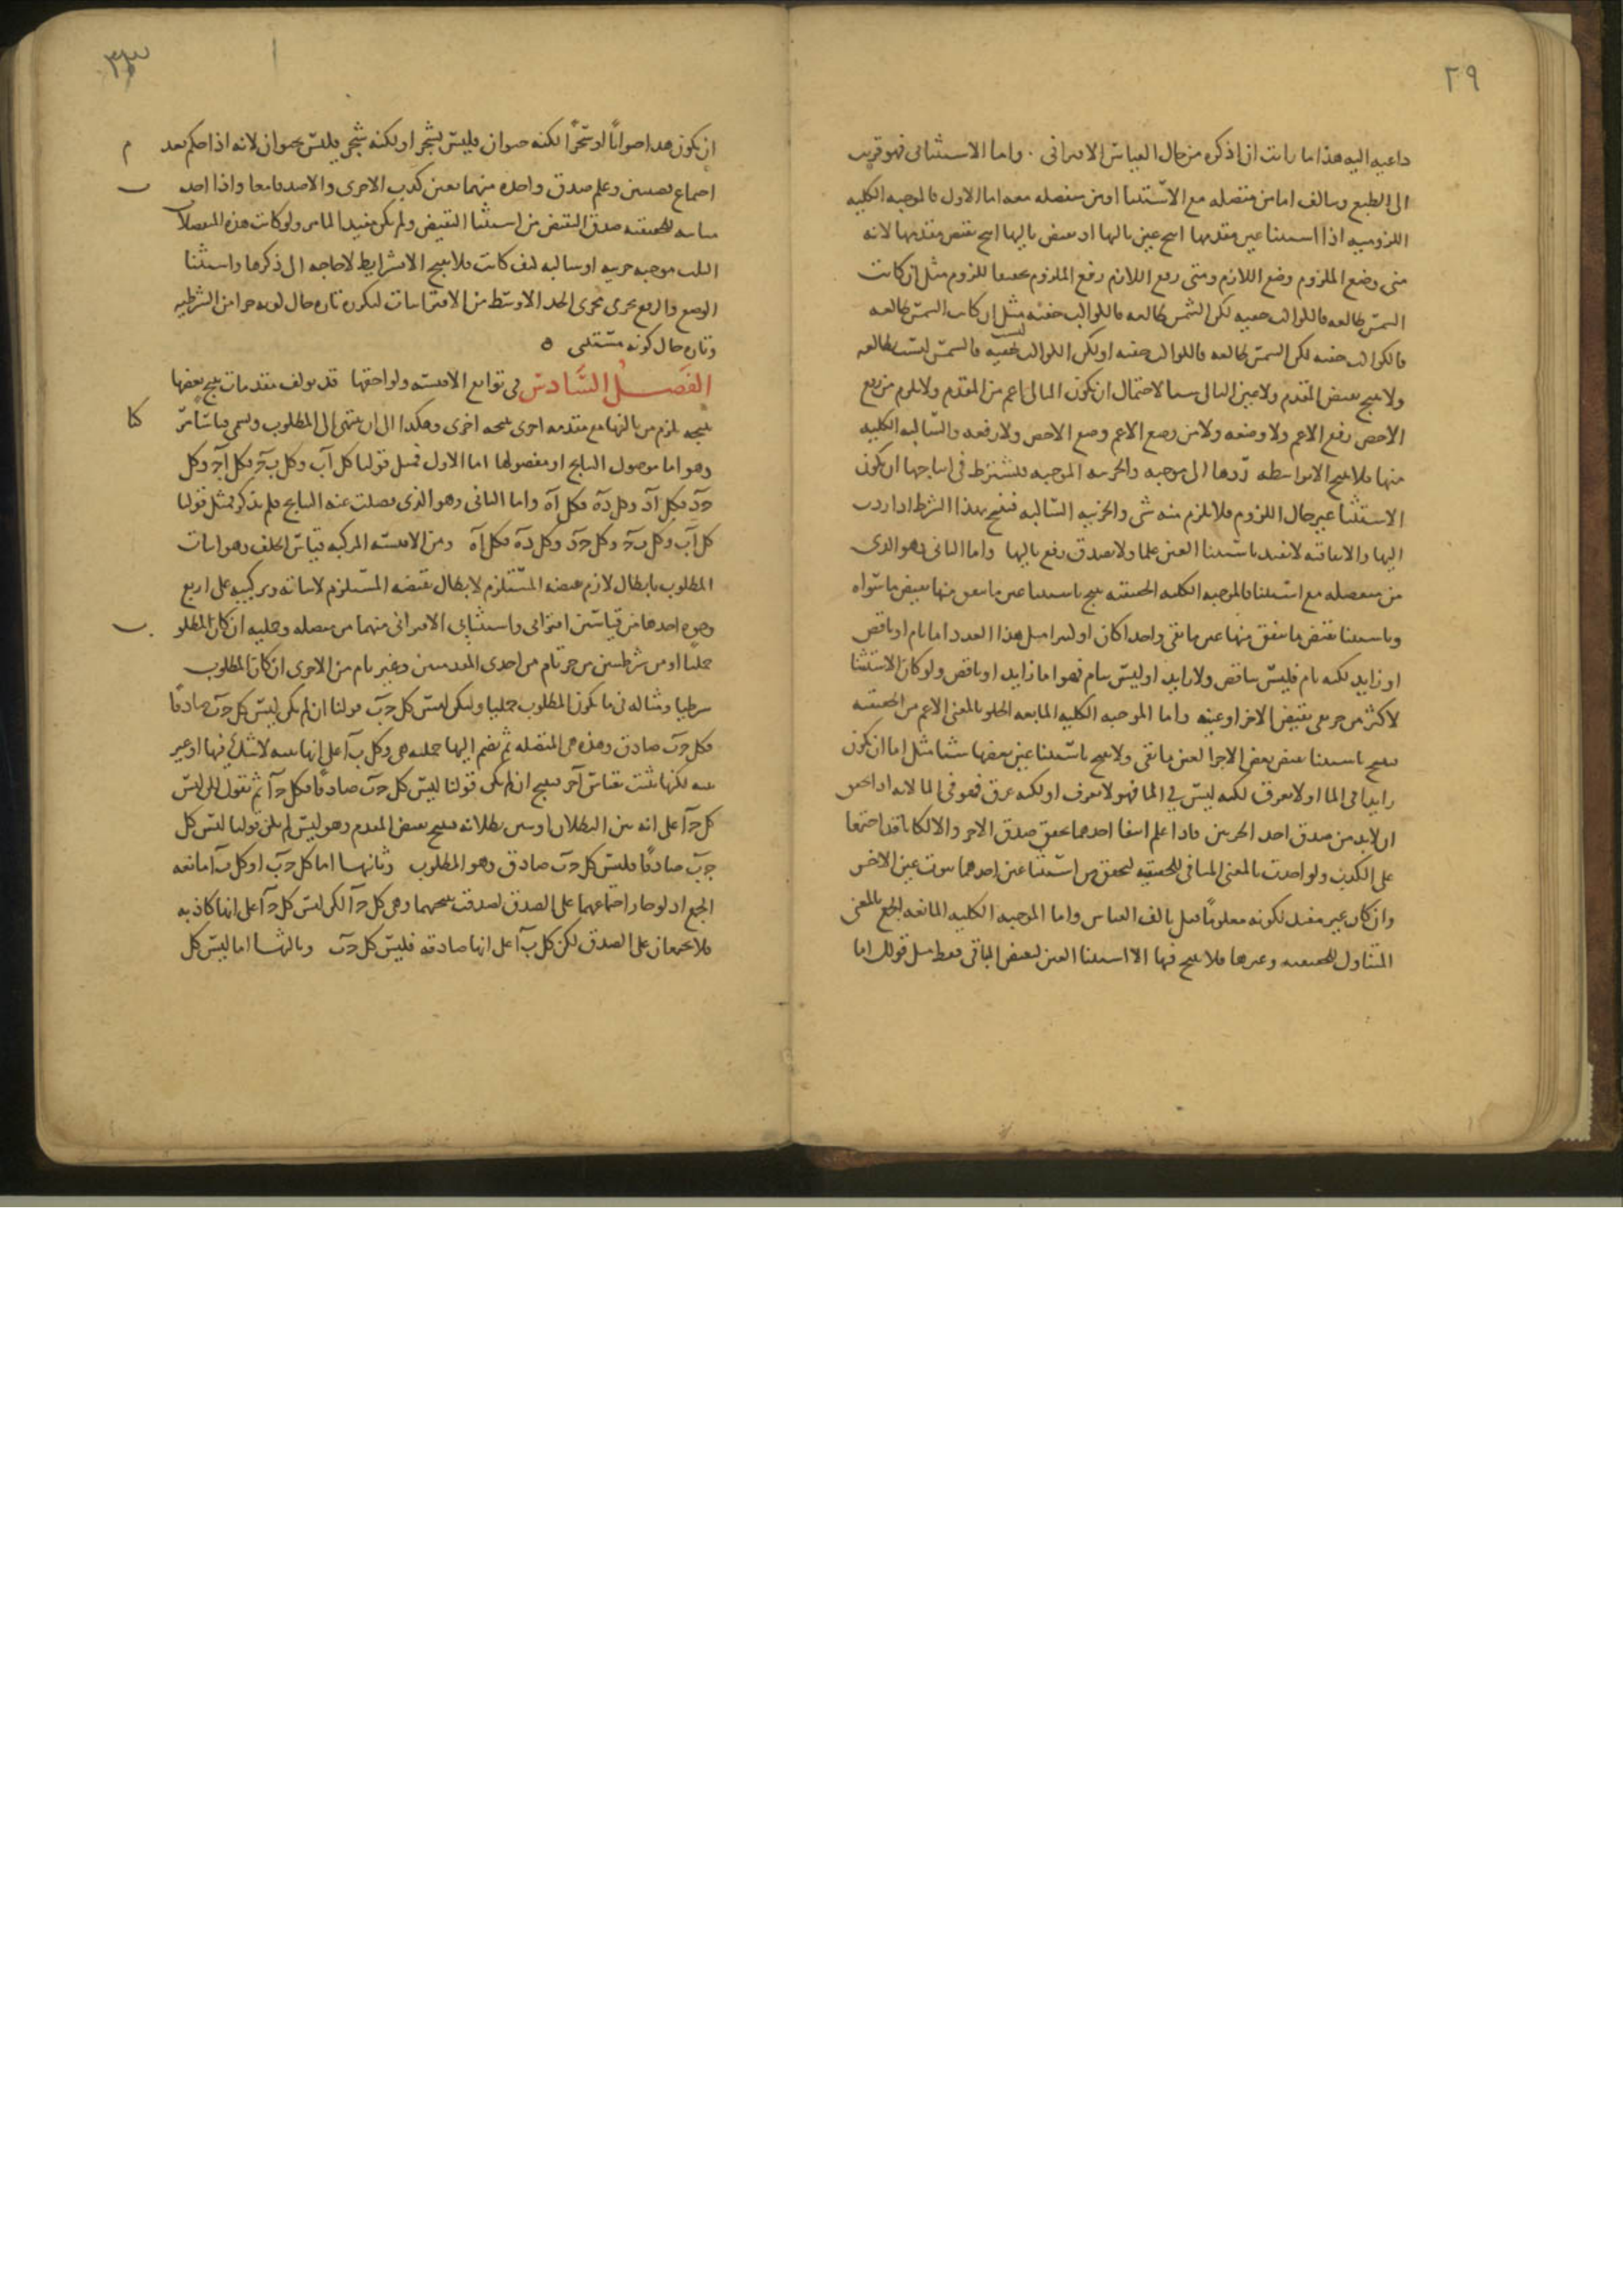 ٢٩
داعيه اليه هذا ما رايت ان اذكره من حال القياس الاقتراني . واما الاستثنائي فهو قريب
الى الطبع ويتالف اما من متصله مع الاستثنا او من منفصله معه اما الاول فالموجبه الكليه
اللزوميه اذا استثنا عين مقدمها انتج عين تاليها او نقيض تاليها انتج نقيض مقدمها لانه
متى وضع الملزوم وضع اللازم ومتى رفع اللازم رفع الملزوم تحقيقا للزوم مثل ان كانت
الشمس طالعه فالكواكب خفيه لكن الشمس طالعه فالكواكب خفيه مثل ان كانت الشمس طالعه
فالكواكب خفيه لكن الشمس طالعه فالكواكب خفيه او لكن الكواكب ليست بخفيه فالشمس ليست بطالعه
ولا ينتج نقيض المقدم ولا عين التالي شيا لاحتمال ان يكون التالي اعم من المقدم ولا يلزم من رفع
الاخص رفع الاعم ولا وضعه ولا من وضع الاعم وضع الاخص ولا رفعه والسالبه الكليه
منها فلا ينتج الا بواسطه ردها الى موجبه والجزييه الموجبه فيشترط في انتاجها ان يكون
الاستثنا عين حال اللزوم فلا يلزم منه شي والجزييه السالبه فتنتج بهذا الشرط اذا ردت
اليها والاتفاقيه لا تفيد باستثنا العين علما ولا يصدق رفع تاليها واما الثاني وهو الذي
من منفصله مع استثنا فالموجبه الكليه الحقيقيه ينتج باستثنا عين ما يتفق منها نقيض ما سواه
وباستثنا نقيض ما يتفق منها عين ما بقي واحدا كان او كثيرا مثل هذا العدد اما تام او ناقص
او زايد لكنه تام فليس بناقص ولا زايد او ليس بتام فهو اما زايد او ناقص ولو كان الاستثنا
لاكثر من جز بقي نقيض الاخر او عينه واما الموجبه الكليه المانعه الخلو بالمعنى الاعم من الحقيقيه
فينتج باستثنا نقيض بعض الاجزا لعين ما بقي ولا ينتج باستثنا عين بعضها شيا مثل اما ان يكون
زيد في الما او لا يغرق لكنه ليس في الما فهو لا يغرق او لكنه غرق فهو في الما لانه اذا تحقق
ان لابد من صدق احد الجزين فاذا علم انتفا احدهما تحقق صدق الاخر والا لكانا قد اجتمعا
على الكذب ولو اخذت بالمعنى المنافي للحقيقيه لتحقق من استثنا عين احدهما ثبوت عين الاخر
وان كان غير مفيد لكونه معلوما قبل تالف القياس واما الموجبه الكليه المانعه الجمع بالمعنى
المتناول للحقيقيه وغيرها فلا ينتج فيها الا استثنا العين لنقيض الباقي فقط مثل قولك اما
٣٣
ان يكون هذا حيوانا او شجرا لكنه حيوان فليس بشجر او لكنه شجر فليس بحيوان لانه اذا حكم بعد
اجتماع وعلم صدق واحده منهما تعين كذب الاخرى والا صدقا معا واذا اخذ
للحقيقيه صدق النقيض من استثنا النقيض ولم يكن مفيدا لما مر ولو كانت هذه المنفصلات
الثلث موجبه جزييه او سالبه كيف كانت فلا ينتج الا بشرايط لا حاجه الى ذكرها واستثنا
الوضع والرفع يجري مجرى الحد الاوسط من الاقترانيات لتكرره تاره حال كونه جزا من الشرطيه
وتاره حال كونه مستقلا ه
الفصل السادس في توابع الاقيسه ولواحقها قد يولف مقدمات ينتج بعضها
نتيجه يلزم من تاليفها مع مقدمه اخرى نتيجه اخرى وهكذا الى ان ينتهي الى المطلوب ويسمى قياسا مركبا
وهو اما موصول النتايج او مفصولها اما الاول فمثل قولنا كل آب وكل ب ج فكل آج وكل
ج د فكل آد وكل د ه فكل آه واما الثاني وهو الذي فصلت عنه النتايج فلم تذكر فمثل قولنا
كل آب وكل ب ج وكل ج د وكل د ه فكل آه ومن الاقيسه المركبه قياس الخلف وهو اثبات
المطلوب بابطال لازم نقيضه المستلزم لابطال نقيضه المستلزم لاثباته وتركيبه على اربع
وجوه احدها من قياسين اقتراني واستثنائي الاقتراني منهما من متصله وحمليه ان كان المطلوب
حمليا او من شرطيتين من جز تام من احدى المقدمتين وغير تام من الاخرى ان كان المطلوب
شرطيا ومثاله في ما يكون المطلوب حمليا وليكن ليس كل ج ب قولنا ان لم يكن ليس كل ج ب صادقا
فكل ج ب صادق وهذه هي المتصله ثم نضم اليها حمليه هي وكل ب آ على انها بينه لا شك فيها او غير
بينه لكنها ثبتت بقياس آخر فينتج ان لم يكن قولنا ليس كل ج ب صادقا فكل ج آ ثم نقول لكن ليس
كل ج آ على انه بين البطلان او تبين بطلانه فينتج نقيض المقدم وهو ليس لم يكن قولنا ليس كل
ج ب صادقا فليس كل ج ب صادق وهو المطلوب وثانيها اما كل ج ب او كل ب آ مانعه
الجمع اذ لو جاز اجتماعهما على الصدق لصدقت نتيجتهما وهي كل ج آ لكن ليس كل ج آ على انها كاذبه
فلا يجتمعان على الصدق لكن كل ب آ على انها صادقه فليس كل ج ب وثالثها اما ليس كل